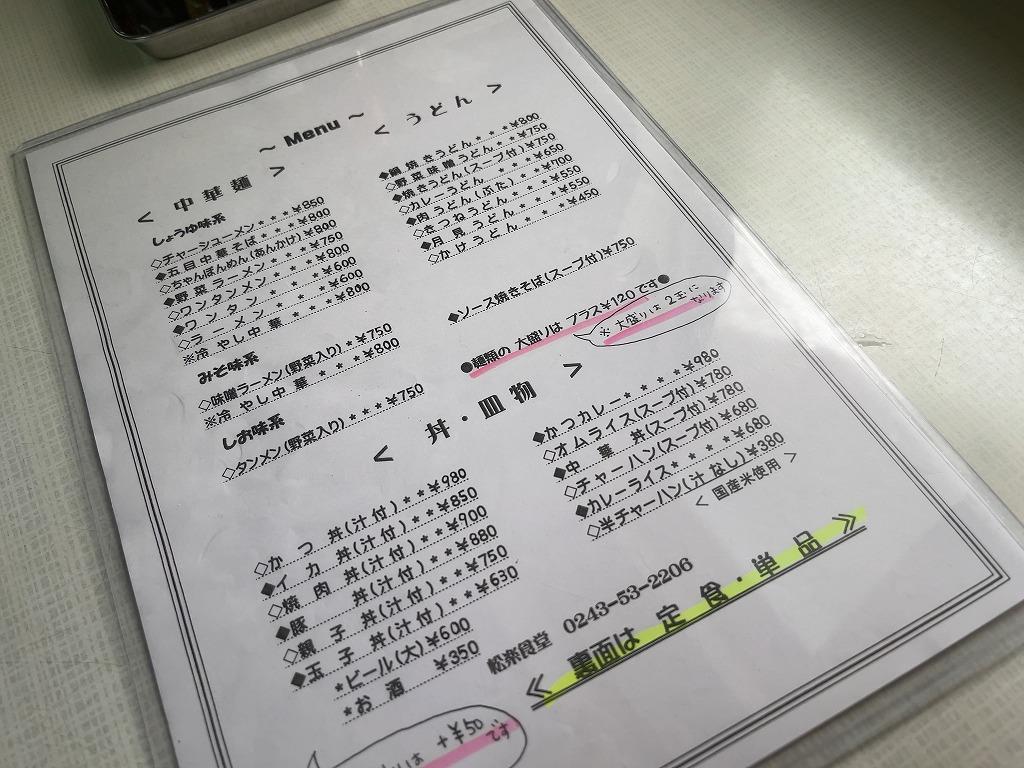 ～ Menu ～
< 中華麺 >
しょうゆ味系
◇チャーシューメン***¥850
◆五目中華そば***¥800
◇ちゃんぽんめん(あんかけ)¥800
◆野菜ラーメン***¥750
◇ワンタンメン***¥800
◆ワンタン***¥600
◇ラーメン***¥600
※冷やし中華**¥800
みそ味系
◇味噌ラーメン(野菜入り)*¥750
※冷やし中華**¥800
しお味系
◇タンメン(野菜入り)***¥750
< うどん >
◆鍋焼きうどん***¥800
◇野菜味噌うどん**¥750
◆焼きうどん(スープ付)¥750
◇カレーうどん***¥650
◆肉うどん(ぶた)**¥700
◇きつねうどん***¥550
◆月見うどん***¥550
◇かけうどん***¥450
◆ソース焼きそば(スープ付)¥750
●麺類の 大盛りは プラス¥120です●
※大盛りは2玉に
なります
< 丼・皿物 >
◇かつ丼(汁付)**¥980
◆イカ丼(汁付)**¥850
◇焼肉丼(汁付)**¥900
◆豚丼(汁付)**¥880
◇親子丼(汁付)**¥750
◆玉子丼(汁付)**¥630
*ビール(大)¥600
*お酒 ¥350
◆かつカレー****¥980
◇オムライス(スープ付)¥780
◆中華丼(スープ付)¥780
◇チャーハン(スープ付)¥680
◆カレーライス****¥680
◇半チャーハン(汁なし)¥380
< 国産米使用 >
松楽食堂 0243-53-2206
≪ 裏面は 定食・単品 ≫
りは +¥50
です